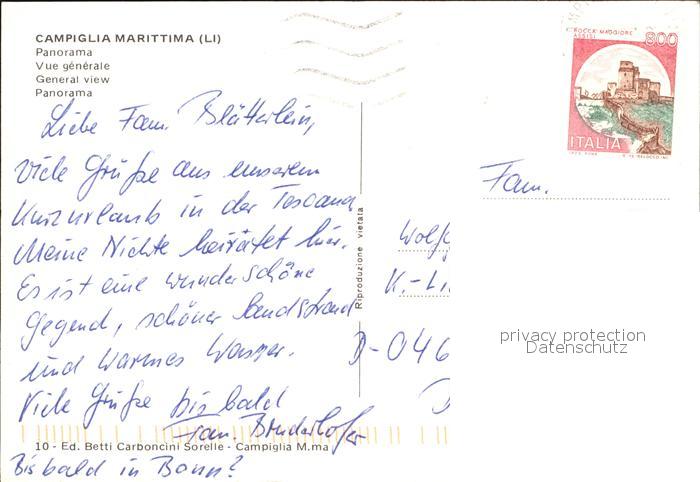 CAMPIGLIA MARITTIMA (LI)
Panorama
Vue générale
General view
Panorama
Liebe Fam. Blätterlein,
Viele Grüße aus unserem
Kurzurlaub in der Toscana.
Meine Nichte heiratet hier.
Es ist eine wunderschöne
Gegend, schöner Sandstrand
und warmes Wasser.
Viele Grüße bis bald
Fam. Bruderhofer
10 - Ed. Betti Carboncini Sorelle - Campiglia M.ma
Bis bald in Bonn?
Riproduzione vietata
ROCCA MAGGIORE
ASSISI
800
ITALIA
Fam.
Wolfg
K.-Li
D-046
privacy protection
Datenschutz